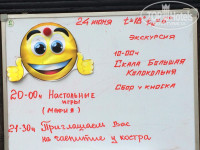 24 июня
Экскурсия
10-00ч
Скала Большая
Колокольня
Сбор у киоска
20-00ч Настольные
игры
(мафия)
21-30ч Приглашаем Вас
на чаепитие у костра